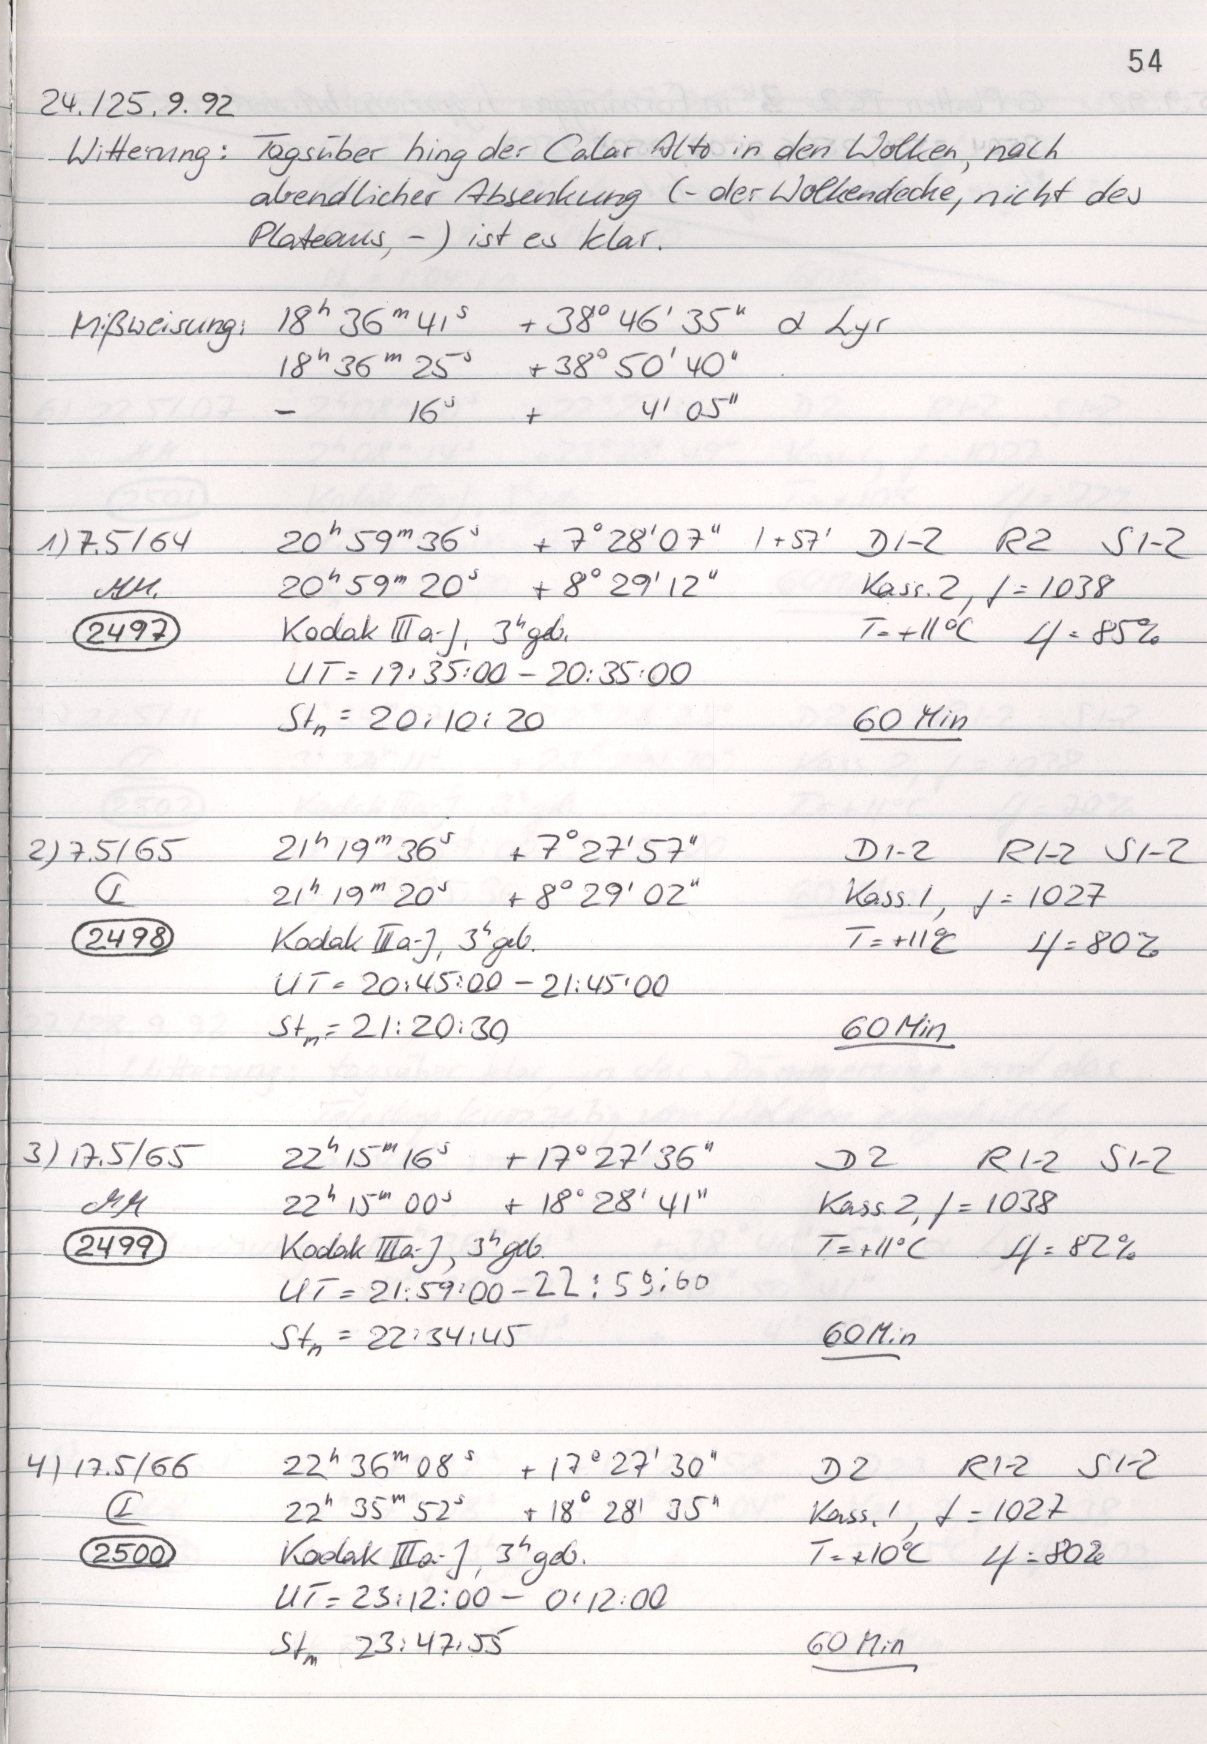 54
24./25.9.92
Witterung: Tagsüber hing der Calar Alto in den Wolken, nach
abendlicher Absenkung (- der Wolkendecke, nicht des
Plateaus, -) ist es klar.
Mißweisung: 18h 36m 41s + 38° 46' 35" α Lyr
18h 36m 25s + 38° 50' 40"
- 16s + 4' 05"
1) 7.5/64 20h 59m 36s + 7° 28' 07" 1+57' D1-2 R2 S1-2
MM. 20h 59m 20s + 8° 29' 12" Kass. 2, f = 1038
2497 Kodak IIIa-J, 3h geb. T = +11°C φ = 85%
UT = 19:35:00 - 20:35:00
Stn = 20:10:20 60 Min
2) 7.5/65 21h 19m 36s + 7° 27' 57" D1-2 R1-2 S1-2
21h 19m 20s + 8° 29' 02" Kass. 1, f = 1027
2498 Kodak IIIa-J, 3h geb. T = +11°C φ = 80%
UT = 20:45:00 - 21:45:00
Stn = 21:20:30 60 Min
3) 17.5/65 22h 15m 16s + 17° 27' 36" D2 R1-2 S1-2
MM 22h 15m 00s + 18° 28' 41" Kass. 2, f = 1038
2499 Kodak IIIa-J, 3h geb. T = +11°C φ = 82%
UT = 21:59:00 - 22:59:60
Stn = 22:34:45 60 Min
4) 17.5/66 22h 36m 08s + 17° 27' 30" D2 R1-2 S1-2
22h 35m 52s + 18° 28' 35" Kass. 1, f = 1027
2500 Kodak IIIa-J, 3h geb. T = +10°C φ = 80%
UT = 23:12:00 - 0:12:00
Stm 23:47:55 60 Min